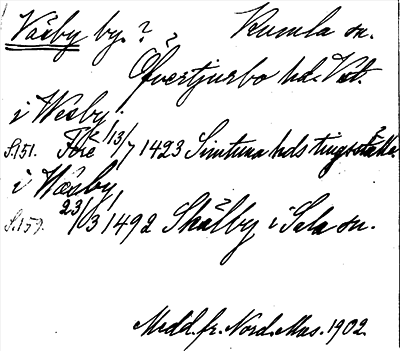 Väsby by. ? Kumla sn.
Övertjurbo hd. Vstm.
i Wesby
S. 151. Före 13/7 1423 Simtuna hds tingställe.
i Wæsby
S. 159. 23/3 1492 Skälby i Sala sn.
Medd. fr. Nord. Mus. 1902.